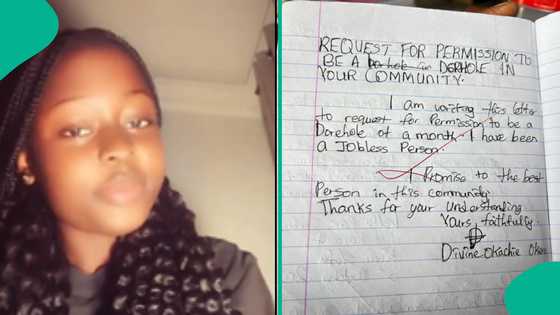 REQUEST FOR PERMISSION TO
BE A DORHOLE IN
YOUR COMMUNITY.
I am writing this letter
to request for Permission to be a
Dorehole of a month. I have been
a Jobless Person.
I Promise to the best
Person in this community
Thanks for your understanding
Yours, faithfully.
Divine Okachie